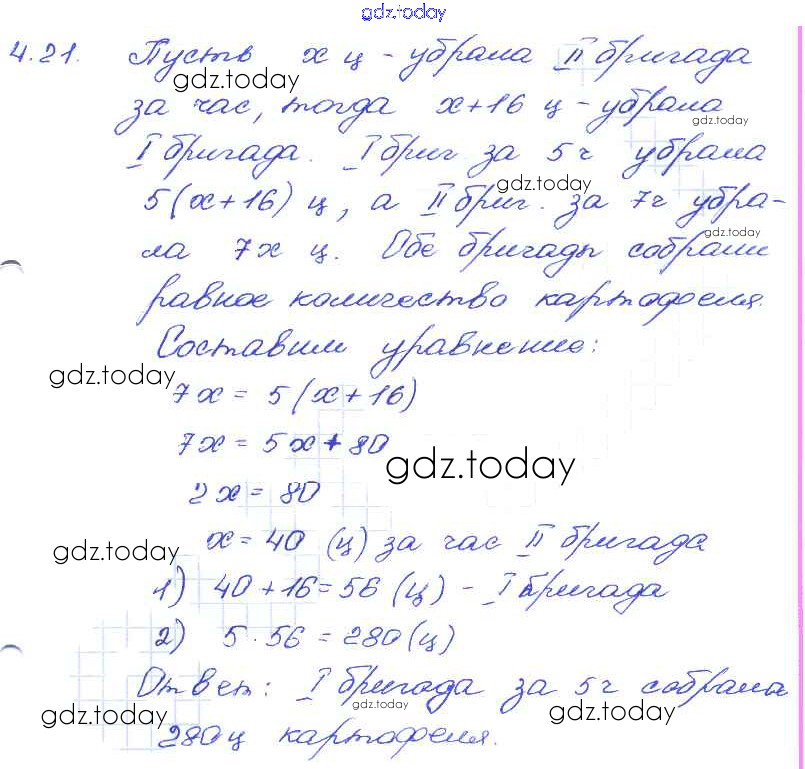 gdz.today
4.21. Пусть x ц - убрала II бригада
gdz.today
за час, тогда x+16 ц - убрала
gdz.today
I бригада. I бриг за 5 ч убрала
gdz.today
5(x+16) ц, а II бриг. за 7ч убра-
gdz.today
ла 7x ц. Обе бригады собрали
равное количество картофеля.
Составим уравнение:
gdz.today
7x = 5(x+16)
7x = 5x + 80
gdz.today
2x = 80
gdz.today
x = 40 (ц) за час II бригада
1) 40 + 16 = 56 (ц) - I бригада
2) 5 · 56 = 280 (ц)
Ответ: I бригада за 5ч собрала
gdz.today
gdz.today
gdz.today
280 ц картофеля.